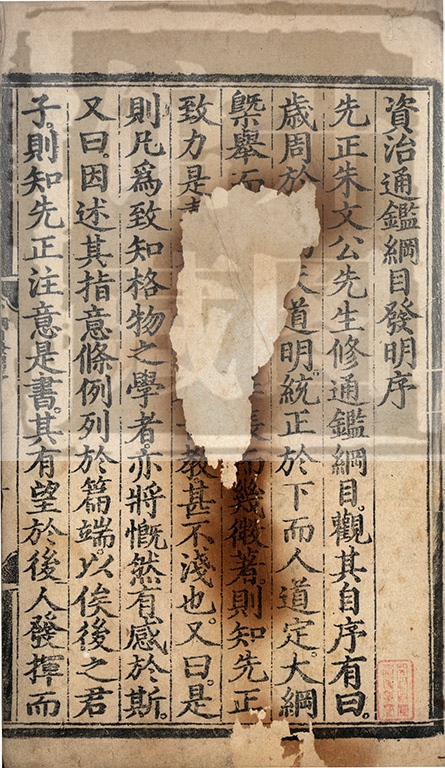 資治通鑑綱目發明序
先正朱文公先生修通鑑綱目。觀其自序有曰。
歲周於天道明。統正於下而人道定。大綱
槩舉而而幾微著。則知先正
致力是教甚不淺也。又曰。是
則凡爲致知格物之學者亦將慨然有感於斯。
又曰。因述其指意條例列於篇端。以俟後之君
子。則知先正注意是書。其有望於後人發揮而